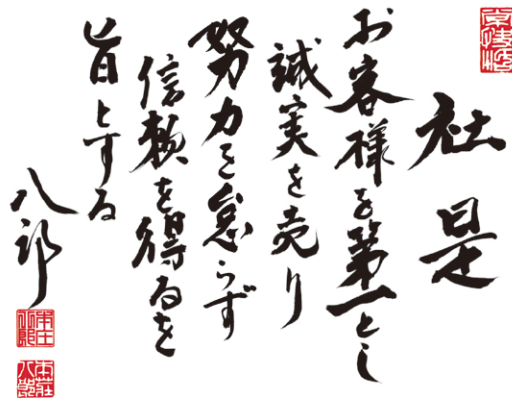 社是
お客様を第一とし
誠実を売り
努力を怠らず
信頼を得るを
旨とする
八郎
本庄
八郎